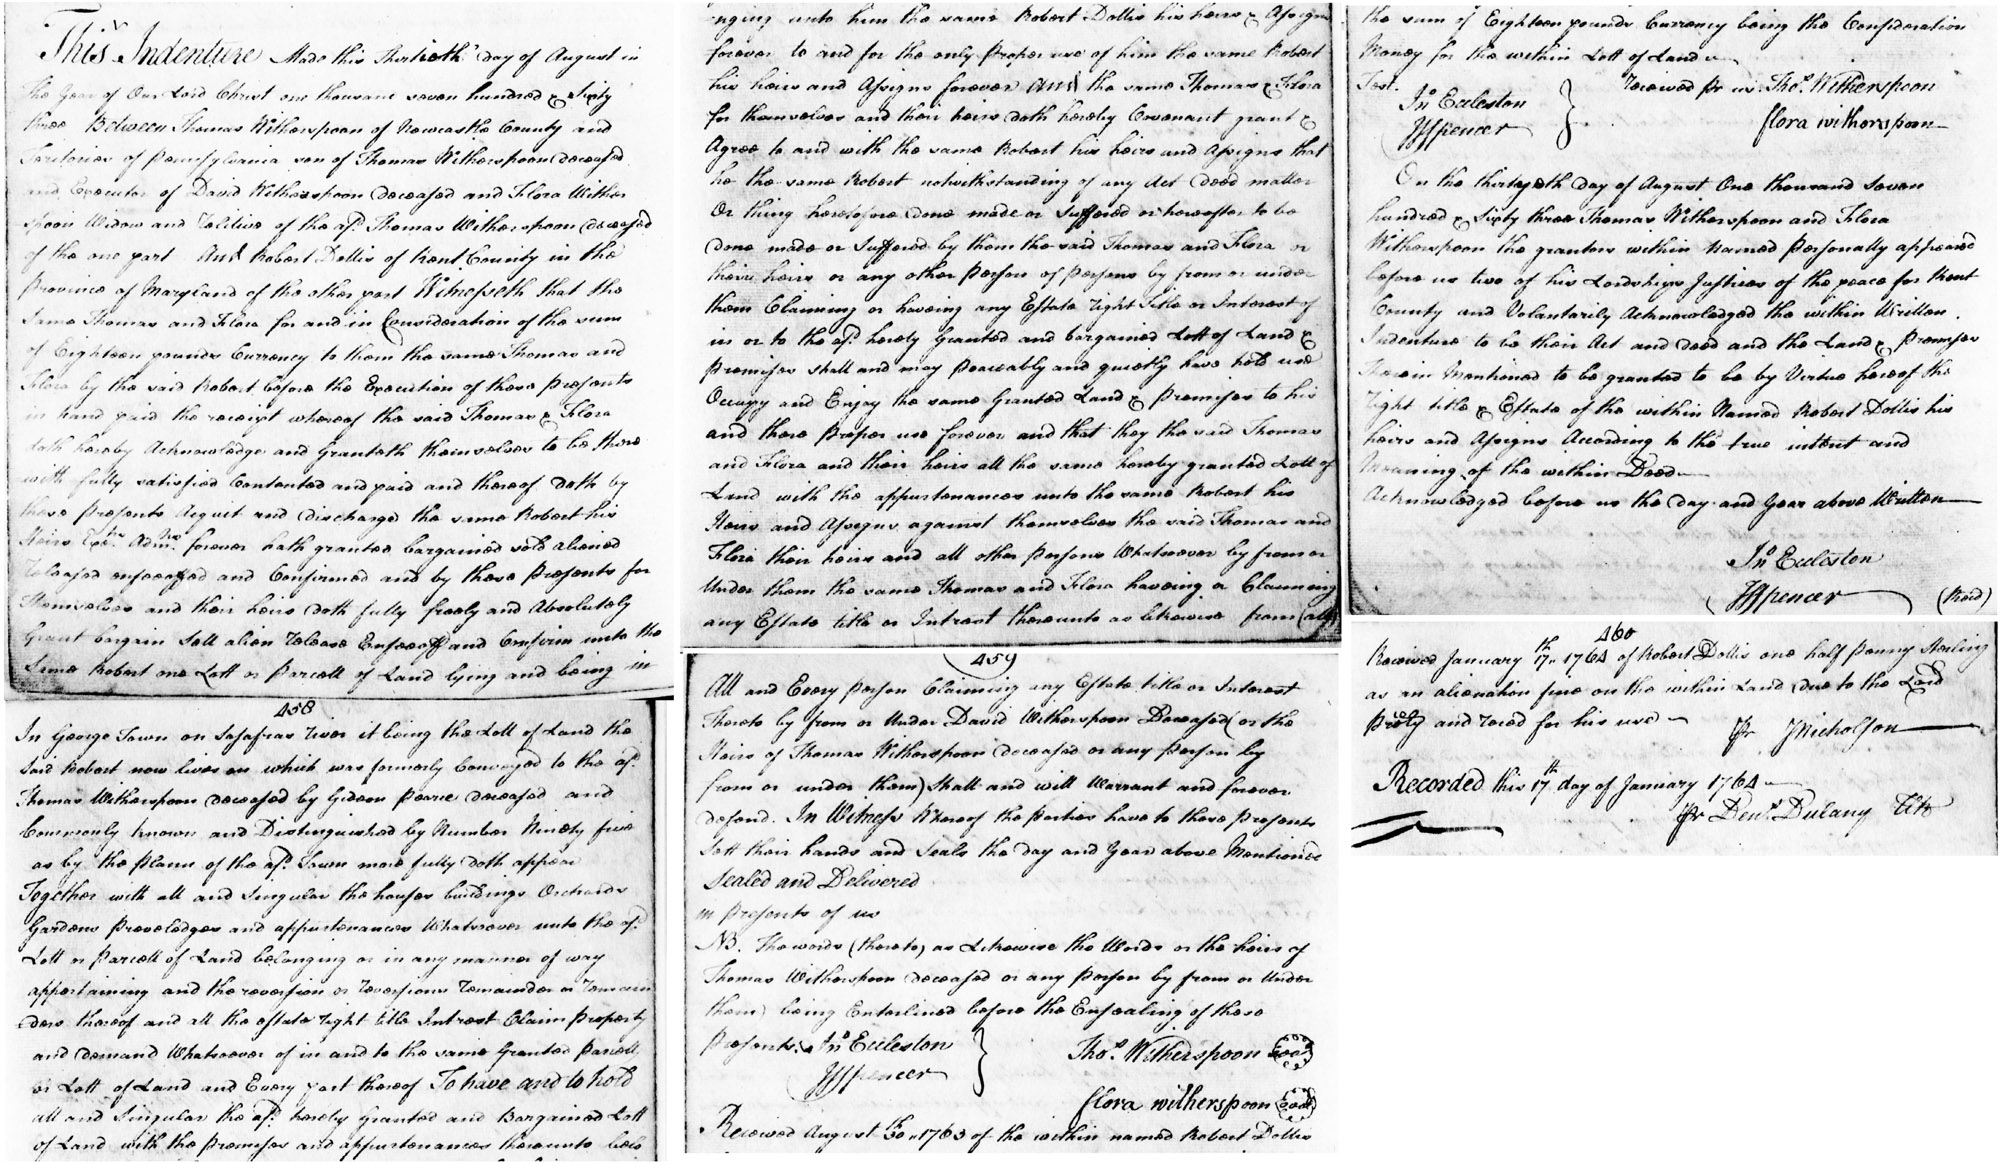 This Indenture Made this Thirtieth day of August in
the Year of Our Lord Christ one thousand seven hundred & Sixty
three Between Thomas Witherspoon of Newcastle County and
Territories of Pennsylvania son of Thomas Witherspoon deceased
and Executor of David Witherspoon deceased and Flora Wither
spoon Widow and Relictive of the afd. Thomas Witherspoon deceased
of the one part And Robert Dollis of Kent County in the
Province of Maryland of the other part Witnesseth that the
Same Thomas and Flora for and in Consideration of the sum
of Eighteen pounds Currency to them the same Thomas and
Flora by the said Robert before the Execution of these presents
in hand paid the receipt whereof the said Thomas & Flora
doth hereby Acknowledge and Granteth themselves to be there
with fully satisfied Contented and paid and thereof doth by
these presents Acquit and discharge the same Robert his
Heirs Extrs. Admrs. forever hath granted bargained sold aliened
released enfeoffed and Confirmed and by these presents for
themselves and their heirs doth fully freely and Absolutely
Grant bargain Sell alien release Enfeoff and Confirm unto the
Same Robert one Lott or Parcell of Land lying and being in
458
In George Town on Sasafras River it being the Lott of Land the
said Robert now lives on which was formerly Conveyed to the afd.
Thomas Witherspoon deceased by Gideon Pearce deceased and
Commonly known and Distinguished by Number Ninety five
as by the plann of the afd. Town more fully doth appear
Together with all and Singular the houses buildings Orchards
Gardens Preveledges and appurtenances Whatsoever unto the afd.
Lott or Parcell of Land belonging or in any manner of way
appertaining and the reversion or reversions remainder or remain
ders thereof and all the estate right title Intrest Claim property
and demand Whatsoever of in and to the same Granted Parcell
or Lott of Land and Every part thereof To have and to hold
all and Singular the afd. hereby Granted and Bargained Lott
of Land with the premises and appurtenances thereunto belo
nging unto him the same Robert Dollis his heirs & Assigns
forever to and for the only proper use of him the same Robert
his heirs and Assigns forever And the same Thomas & Flora
for themselves and their heirs doth hereby Covenant grant &
Agree to and with the same Robert his heirs and Assigns that
he the same Robert notwithstanding of any Act deed matter
Or thing heretofore done made or Suffered or hereafter to be
done made or Suffered by them the said Thomas and Flora or
their heirs or any other person of persons by from or under
them Claiming or haveing any Estate right Title or Interest of
in or to the afd. hereby Granted and bargained Lott of Land &
premises shall and may peaceably and quietly have hold use
Occupy and Enjoy the same Granted Land & premises to his
and there proper use forever and that they the said Thomas
and Flora and their heirs all the same hereby granted Lott of
Land with the appurtenances unto the same Robert his
Heirs and Assigns against themselves the said Thomas and
Flora their heirs and all other persons Whatsoever by from or
Under them the same Thomas and Flora haveing or Claiming
any Estate title or Intrest thereunto as likewise from (all)
459
All and Every person Claiming any Estate title or Interest
thereto by from or Under David Witherspoon Deceased (or the
Heirs of Thomas Witherspoon deceased or any person by
from or under them) Shall and will Warrant and forever
defend. In Witness Whereof the parties have to these presents
sett their hands and Seals the day and Year above Mentioned
Sealed and Delivered
in presents of us
NB. The words (thereto) as Likewise the Words or the heirs of
Thomas Witherspoon deceased or any person by from or Under
them) being Enterlined before the Ensealing of these
presents. Jno Eccleston
JSpencer
Thos. Witherspoon Seal
flora witherspoon Seal
Received August 30th 1763 of the within named Robert Dollis
the sum of Eighteen pounds Currency being the Consideration
Money for the within Lott of Land
Test.
Jno Eccleston
JSpencer
received pr us Thos. Witherspoon
flora witherspoon
On the thirtyeth day of August One thousand Seven
hundred & Sixty three Thomas Witherspoon and Flora
Witherspoon the grantors within Named personally appeared
before us two of his Lordships Justices of the peace for Kent
County and Volantarily Acknowledged the within Written
Indenture to be their Act and deed and the Land & premises
therein Mentioned to be granted to be by Virtue hereof the
right title & Estate of the within Named Robert Dollis his
heirs and Assigns According to the true intent and
Meaning of the within Deed
Acknowledged before us the day and Year above Written
Jno Eccleston
JSpencer
(Recd)
460
Received January 17th 1764 of Robert Dollis one half penny Sterling
as an alienation fine on the within Land due to the Lord
Propty and reced for his use
pr JNicholson
Recorded this 17th day of January 1764
pr Denn. Dulany Clk